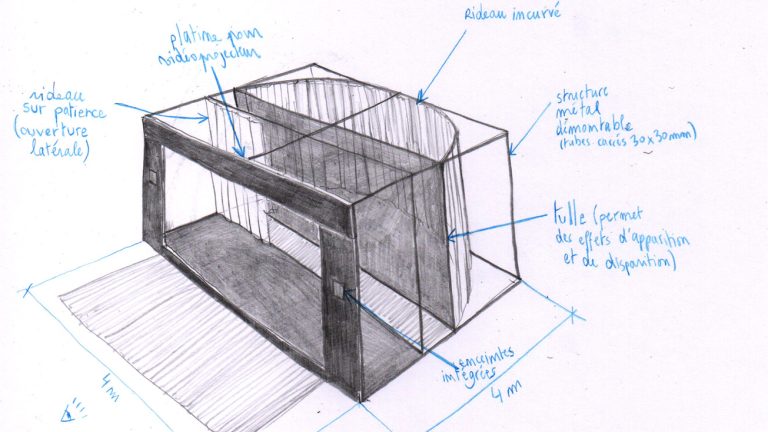 platine pour
vidéoprojecteur
Rideau incurvé
rideau
sur patience
(ouverture
latérale)
structure
métal
démontrable
(tubes carrés 30x30mm)
tulle (permet
des effets d'apparition
et de disparition)
enceintes
intégrées
4m
4m